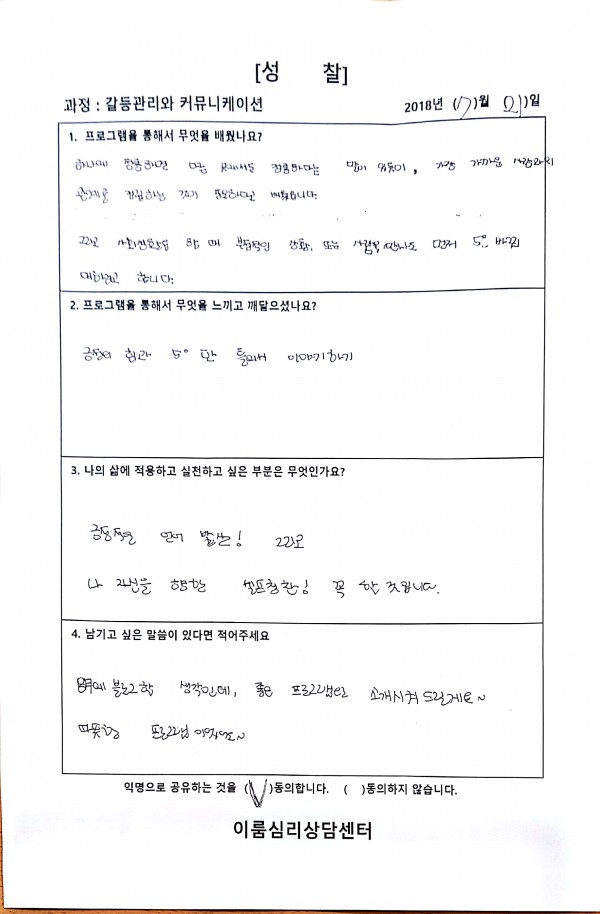 [성 찰]
과정 : 갈등관리와 커뮤니케이션
2018년 (7)월 (21)일
1. 프로그램을 통해서 무엇을 배웠나요?
하나에 통용하면 다른 곳에서도 통용하다는 말이 있듯이, 가장 가까운 사람과의
관계를 정립하는 것이 필요하다고 배웠습니다.
그리고 사회생활을 할 때 부정적인 상황, 또는 사람을 만나도 먼저 5° 바꿔
대하려고 합니다.
2. 프로그램을 통해서 무엇을 느끼고 깨달으셨나요?
긍정의 힘과 5° 만 틀어서 이야기하기
3. 나의 삶에 적용하고 실천하고 싶은 부분은 무엇인가요?
긍정적인 언어 발산! 그리고
나 자신을 향한 셀프칭찬! 꼭 할 것입니다.
4. 남기고 싶은 말씀이 있다면 적어주세요
블로그할 생각인데, 좋은 프로그램으로 소개시켜 드릴게요~
따뜻한 프로그램이었어요~
익명으로 공유하는 것을 (V)동의합니다. ( )동의하지 않습니다.
이룸심리상담센터